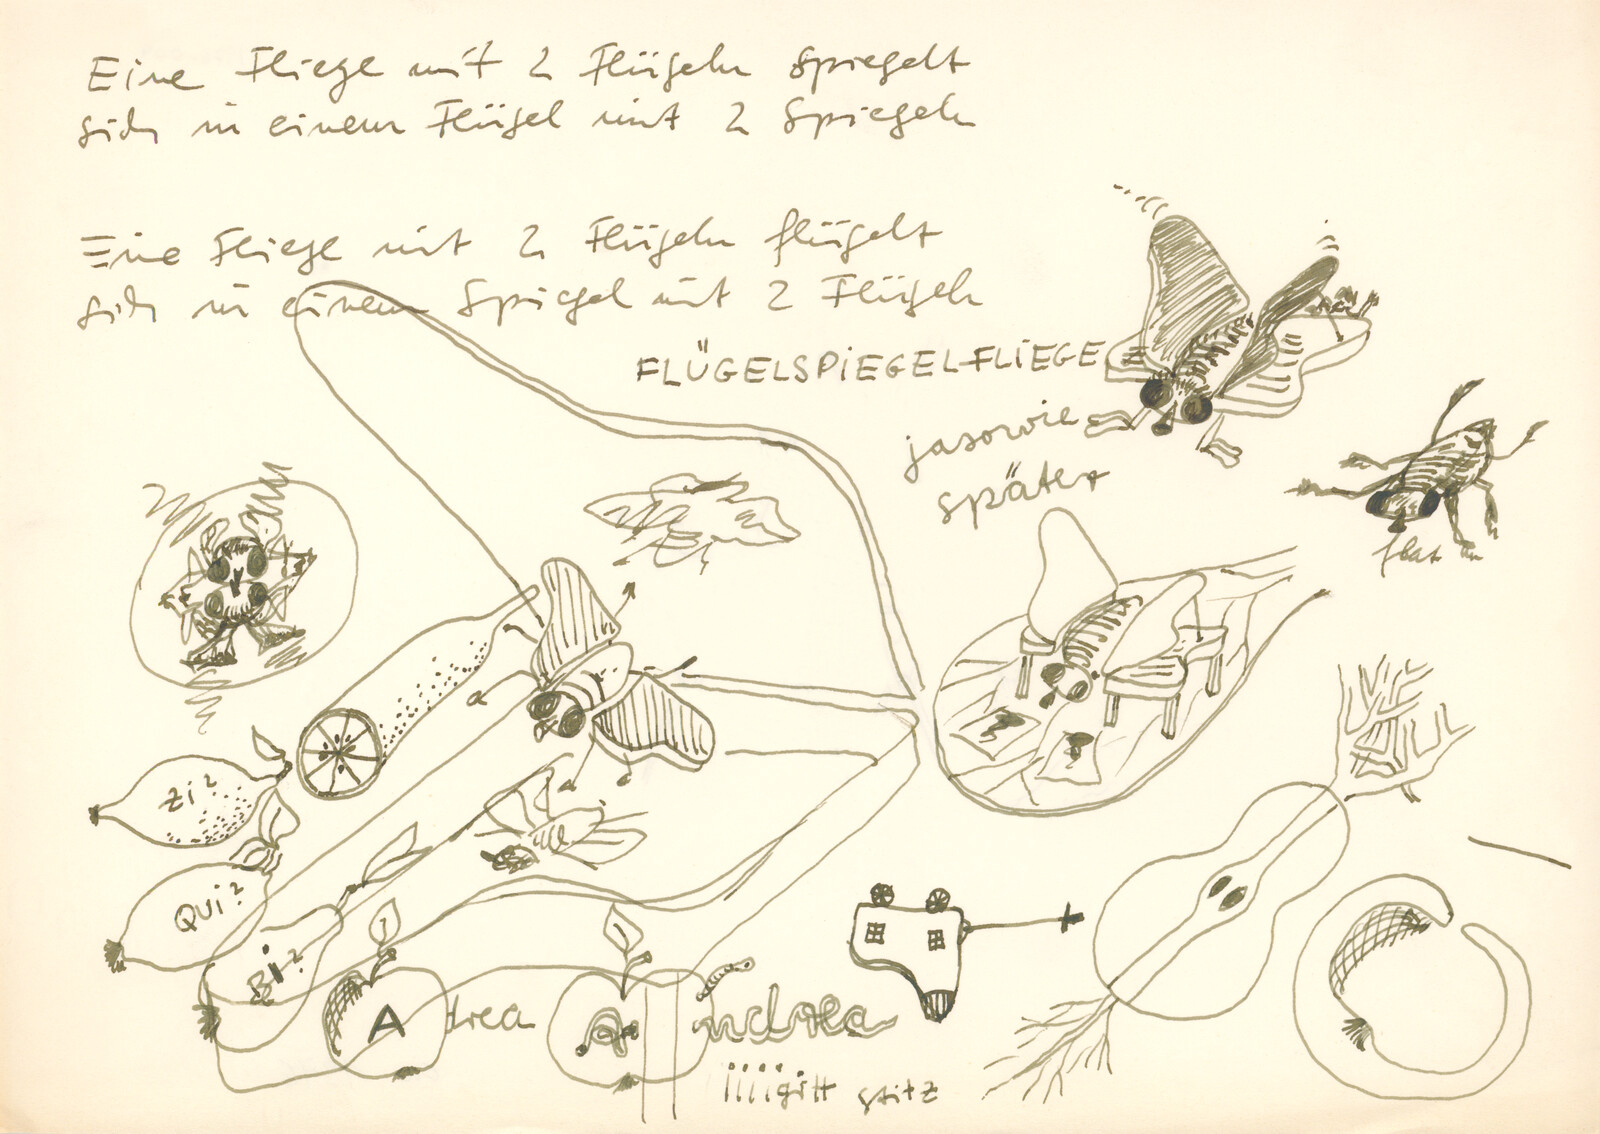 Eine Fliege mit 2 Flügeln spiegelt
sich in einem Flügel mit 2 Spiegeln
Eine Fliege mit 2 Flügeln flügelt
sich in einem Spiegel mit 2 Flügeln
FLÜGELSPIEGELFLIEGE
jasowie
später
a
Zi?
QUi?
Bi?
A
drea
A
ndrea
iiiigitt